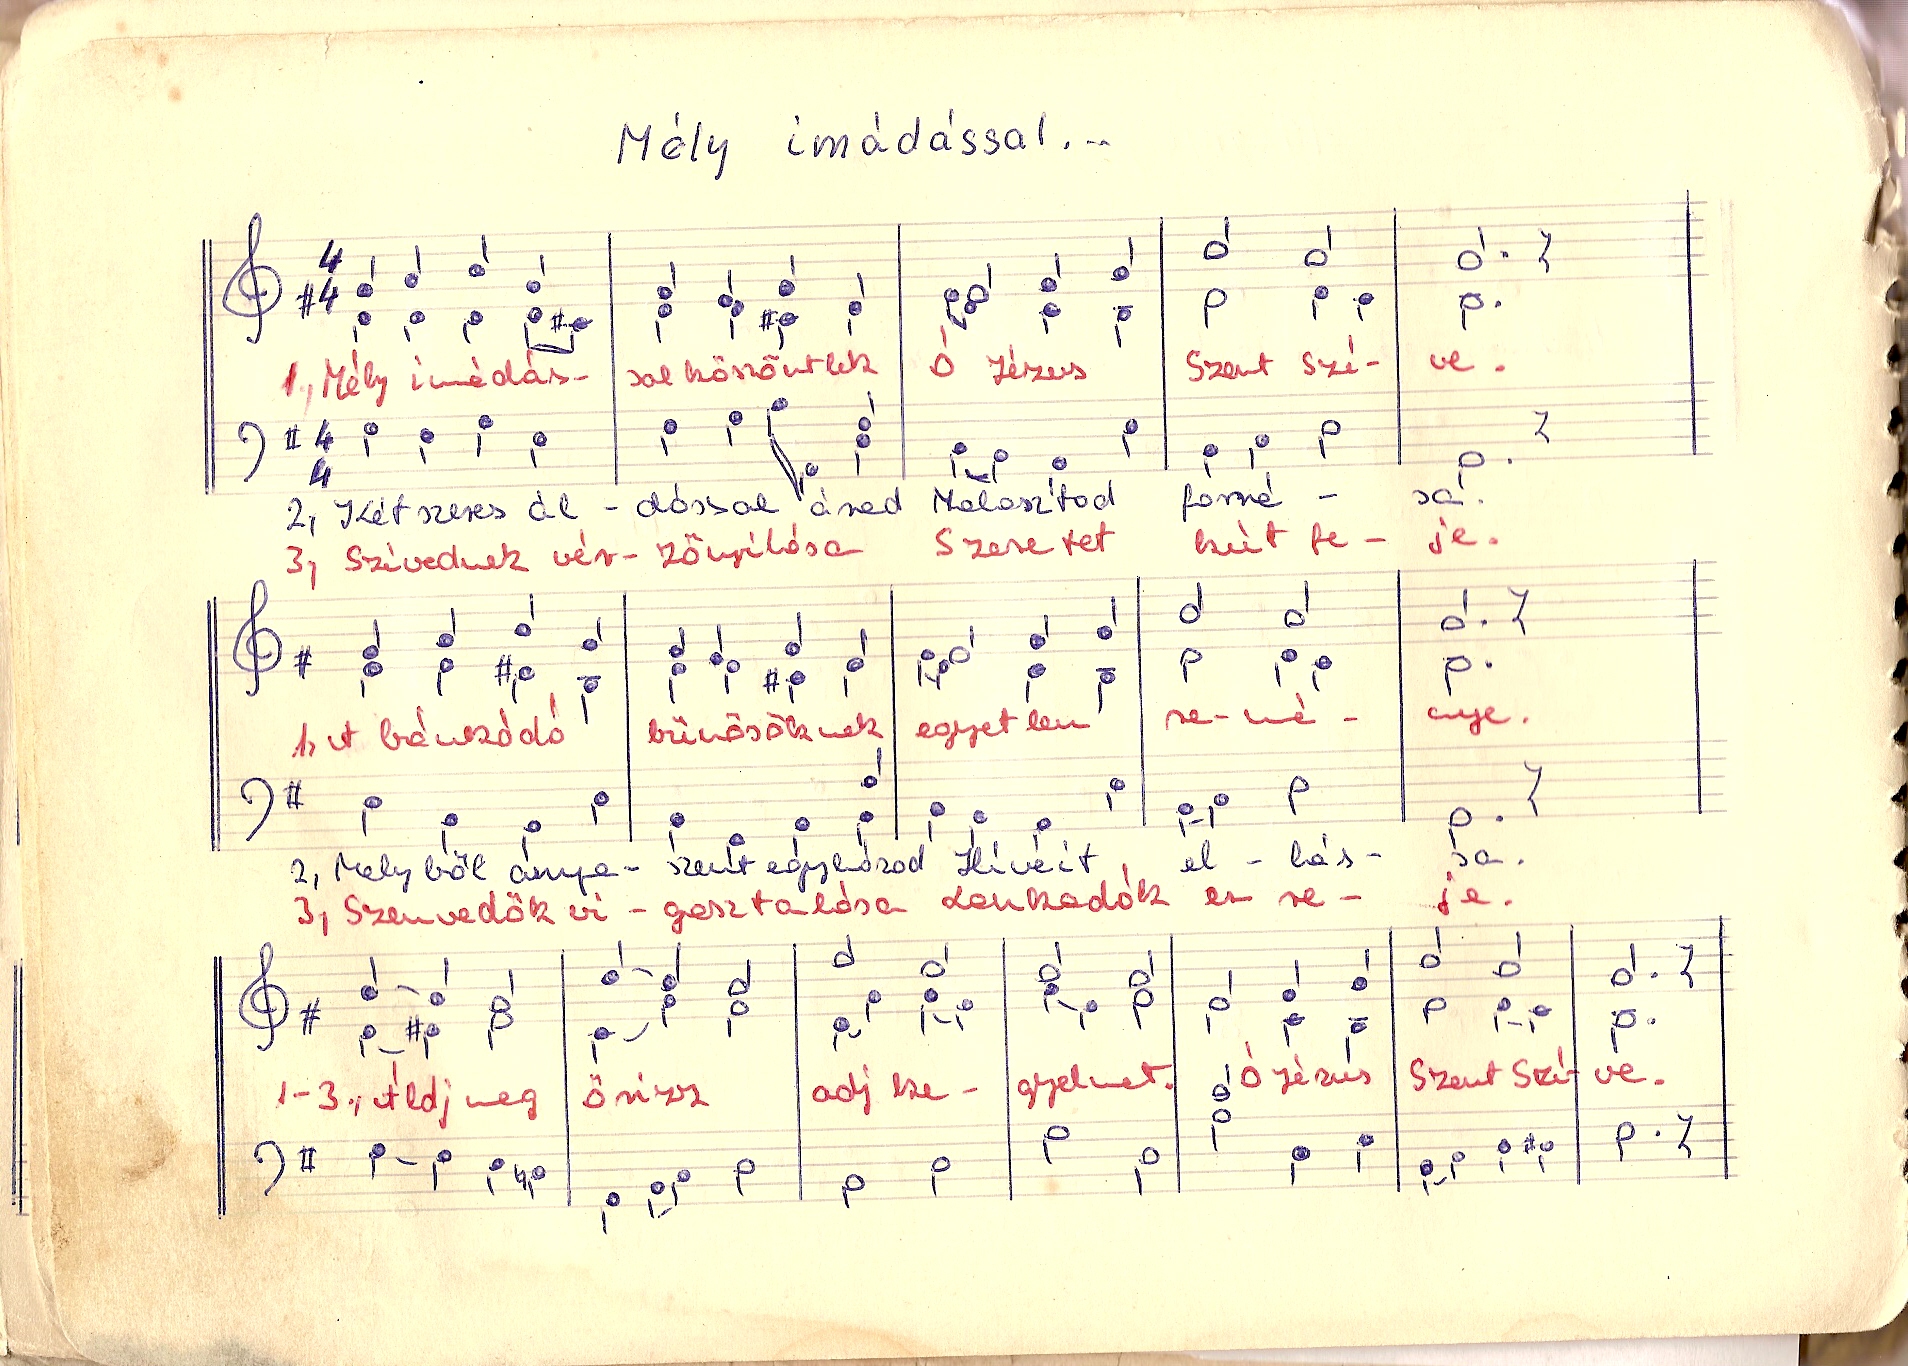 Mély imádással...
4 4
1, Mély imádás- sal köszöntlek Ó Jézus Szent Szí- ve.
4 4
2, Kétszeres ál - dással árad Malasztod forrá - sa.
3, Szívednek vér- zőnyílása Szeretet kút fe - je.
1, A bánkódó bűnösöknek egyetlen re-mé - nye.
2, Melyből anya- szentegyházad Híveit, el - hás- sa.
3, Szenvedők vi - gasztalása Lankadók er re - je.
1-3., Áldj meg Őrizz adj ke - gyelmet. Ó Jézus Szent Szí- ve.